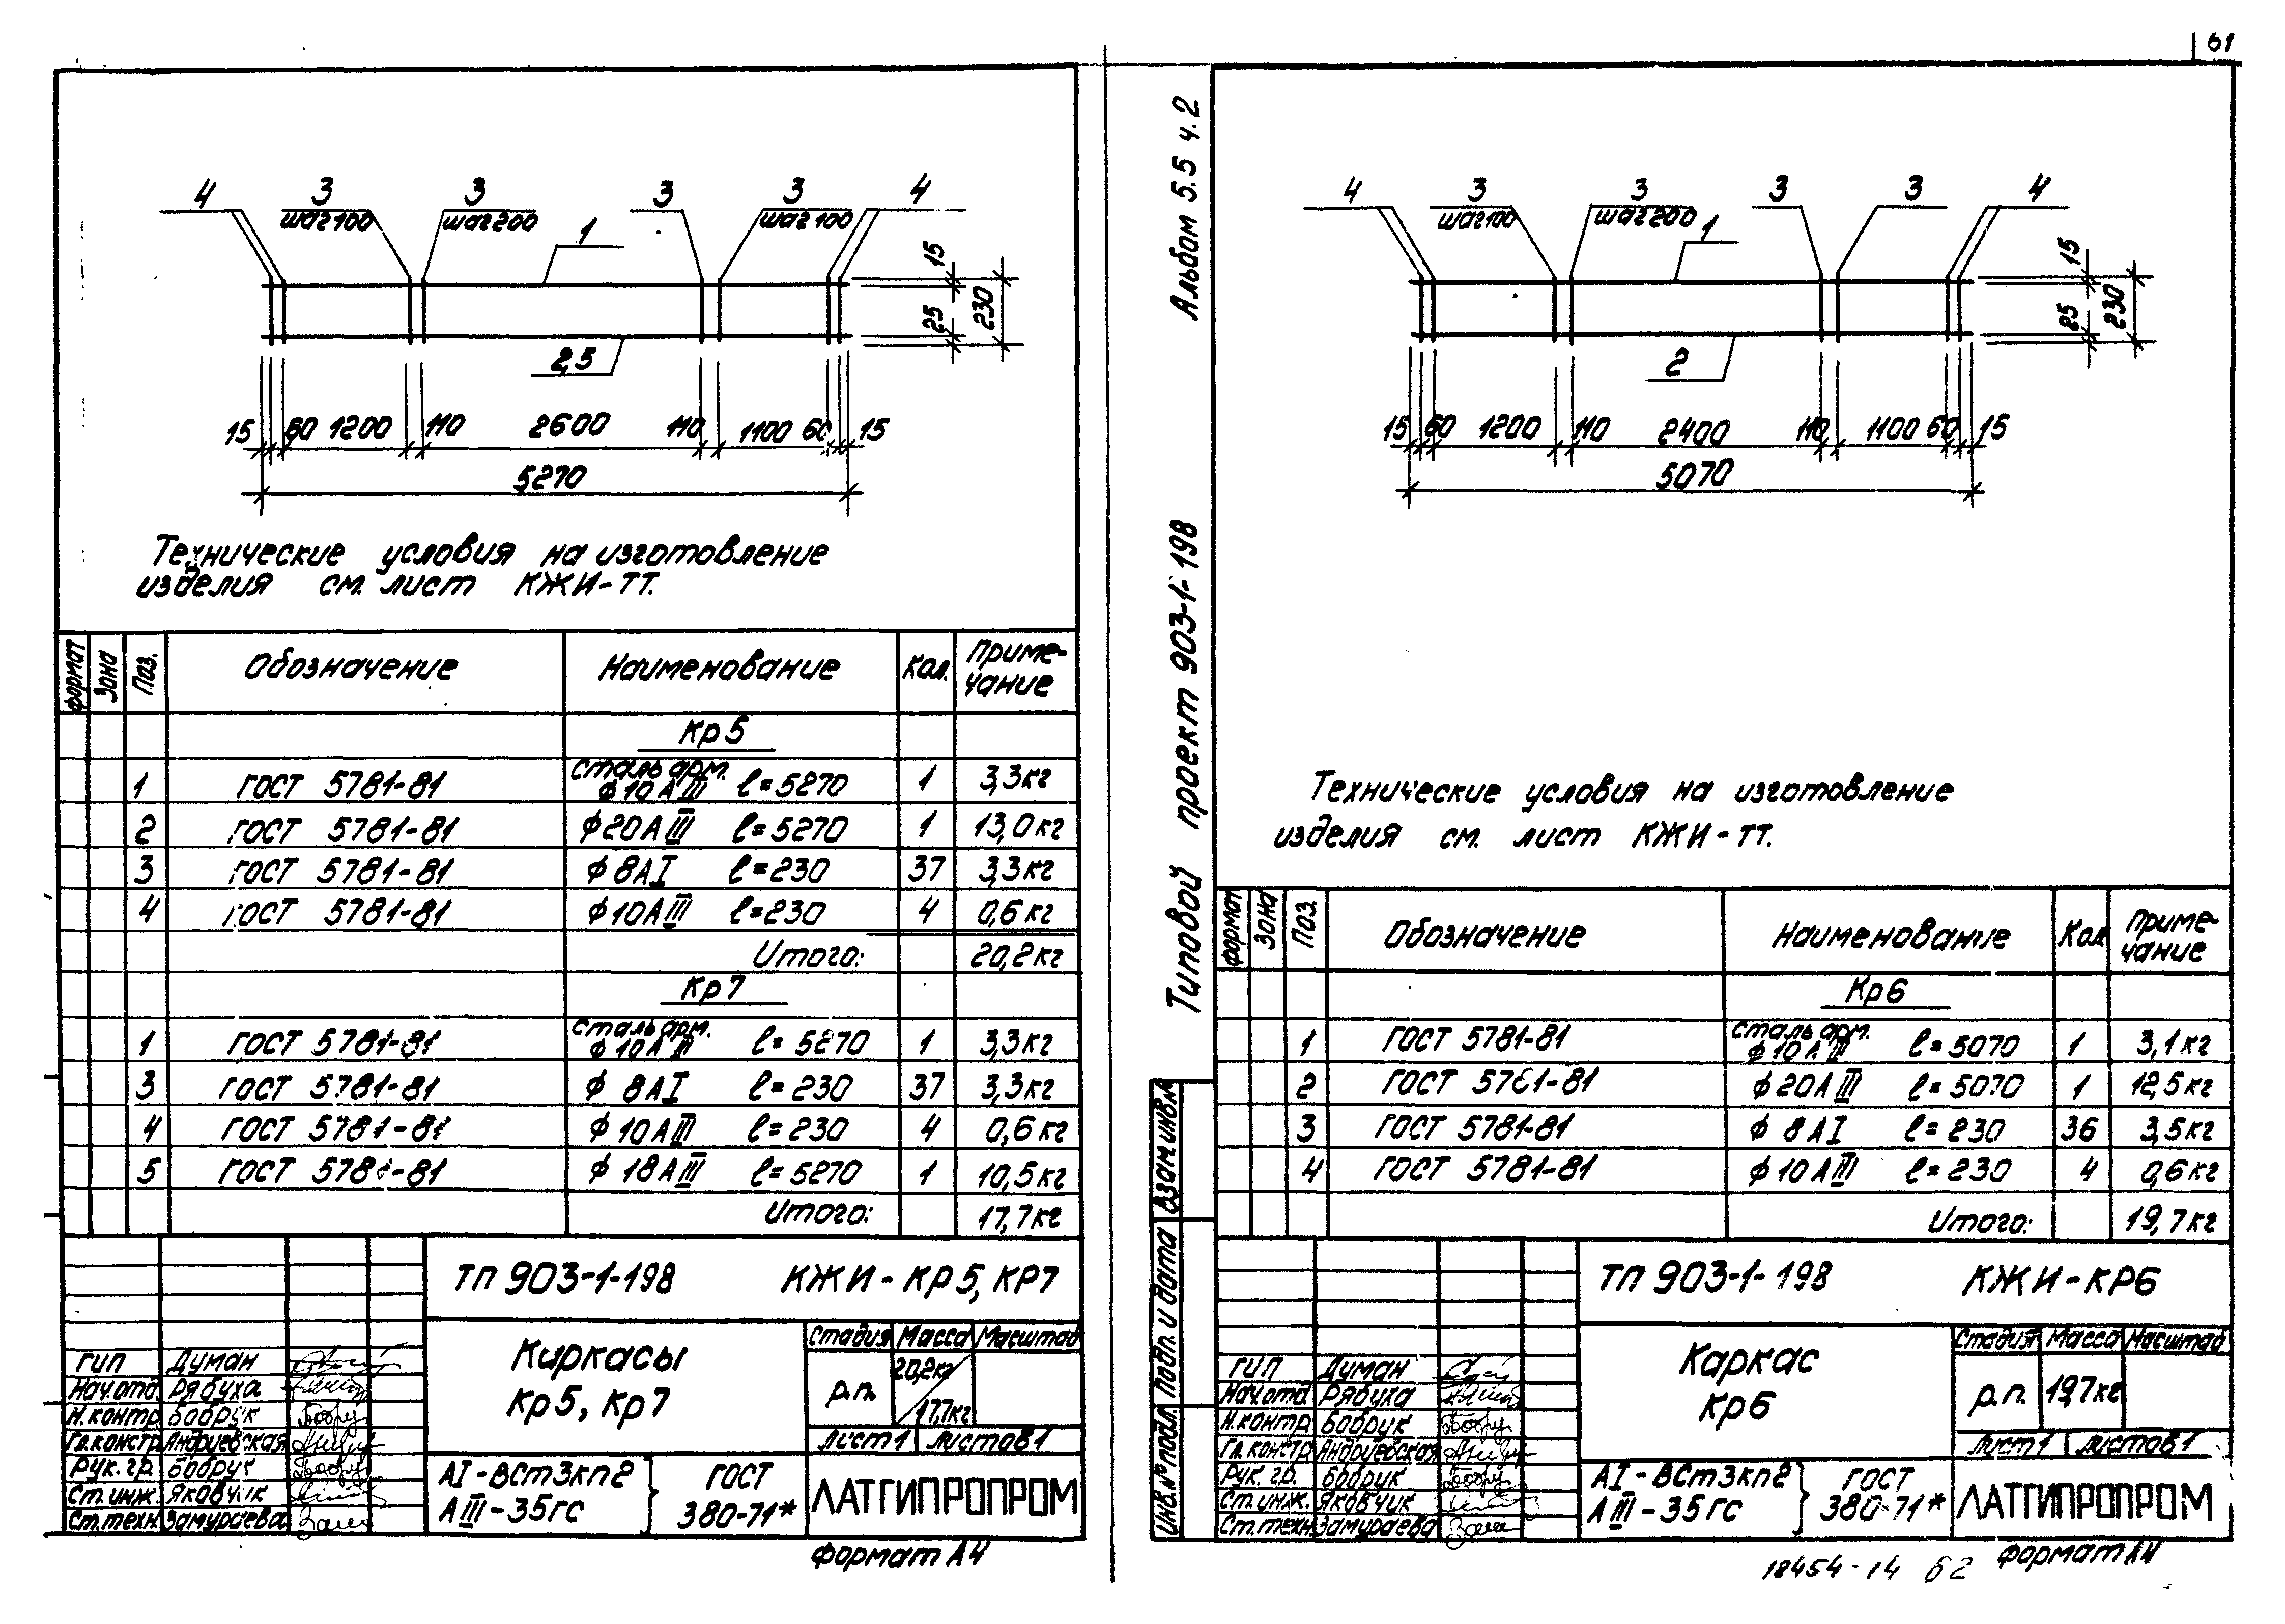 61
4 3 3 3 3 4
шаг100 шаг200 шаг100
1
15
25
230
2,5
15 60 1200 110 2600 110 1100 60 15
5270
Технические условия на изготовление
изделия см. лист КЖИ-ТТ.
формат Зона Поз. Обозначение Наименование Кол. Приме-
чание
Кр5
1 ГОСТ 5781-81 сталь арм. ф10АIII ℓ=5270 1 3,3кг
2 ГОСТ 5781-81 ф20АIII ℓ=5270 1 13,0кг
3 ГОСТ 5781-81 ф8АI ℓ=230 37 3,3кг
4 ГОСТ 5781-81 ф10АIII ℓ=230 4 0,6кг
Итого: 20,2кг
Кр7
1 ГОСТ 5781-81 сталь арм. ф10АIII ℓ=5270 1 3,3кг
3 ГОСТ 5781-81 ф8АI ℓ=230 37 3,3кг
4 ГОСТ 5781-81 ф10АIII ℓ=230 4 0,6кг
5 ГОСТ 5781-81 ф18АIII ℓ=5270 1 10,5кг
Итого: 17,7кг
ТП 903-1-198 КЖИ-КР5, КР7
Каркасы
Кр5, Кр7
Стадия Масса Масштаб
р.п. 20,2кг
17,7кг
лист1 листов1
ГИП Думан
Нач.отд. Рябуха
Н.контр. Бобрук
Гл.констр. Андруевская
Рук.гр. Бобрук
Ст.инж. Яковчик
Ст.техн. Замураева
АI-ВСт3кп2
АIII-35ГС
ГОСТ
380-71*
ЛАТГИПРОПРОМ
формат А4
Альбом 5.5 ч.2
Типовой проект 903-1-198
4 3 3 3 3 4
шаг100 шаг200
1
15
25
230
2
15 60 1200 110 2400 110 1100 60 15
5070
Технические условия на изготовление
изделия см. лист КЖИ-ТТ.
формат Зона Поз. Обозначение Наименование Кол. Приме-
чание
Кр6
1 ГОСТ 5781-81 сталь арм. ф10АIII ℓ=5070 1 3,1кг
2 ГОСТ 5781-81 ф20АIII ℓ=5070 1 12,5кг
3 ГОСТ 5781-81 ф8АI ℓ=230 36 3,5кг
4 ГОСТ 5781-81 ф10АIII ℓ=230 4 0,6кг
Итого: 19,7кг
Взам.инв.№
Подп. и дата
Инв.№ подл.
ТП 903-1-198 КЖИ-КР6
Каркас
Кр6
Стадия Масса Масштаб
р.п. 19,7кг
лист1 листов1
ГИП Думан
Нач.отд. Рябуха
Н.контр. Бобрук
Гл.констр. Андруевская
Рук.гр. Бобрук
Ст.инж. Яковчик
Ст.техн. Замураева
АI-ВСт3кп2
АIII-35ГС
ГОСТ
380-71*
ЛАТГИПРОПРОМ
формат А4
18454-14 62